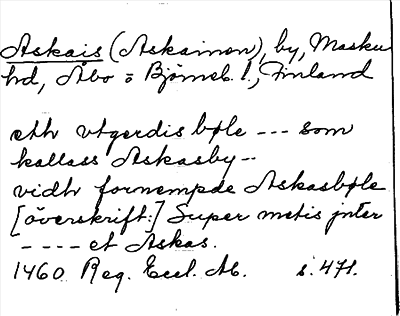 Askais (Askainen), by, Masku
hd, Åbo o Björneb. l., Finland
eth vtgerdis bøle --- som
kallass Askasby --
vidh fornempde Askasbøle
[överskrift:] Super metis jnter
---- et Askas.
1460 Reg. Eccl. Ab. s. 471.